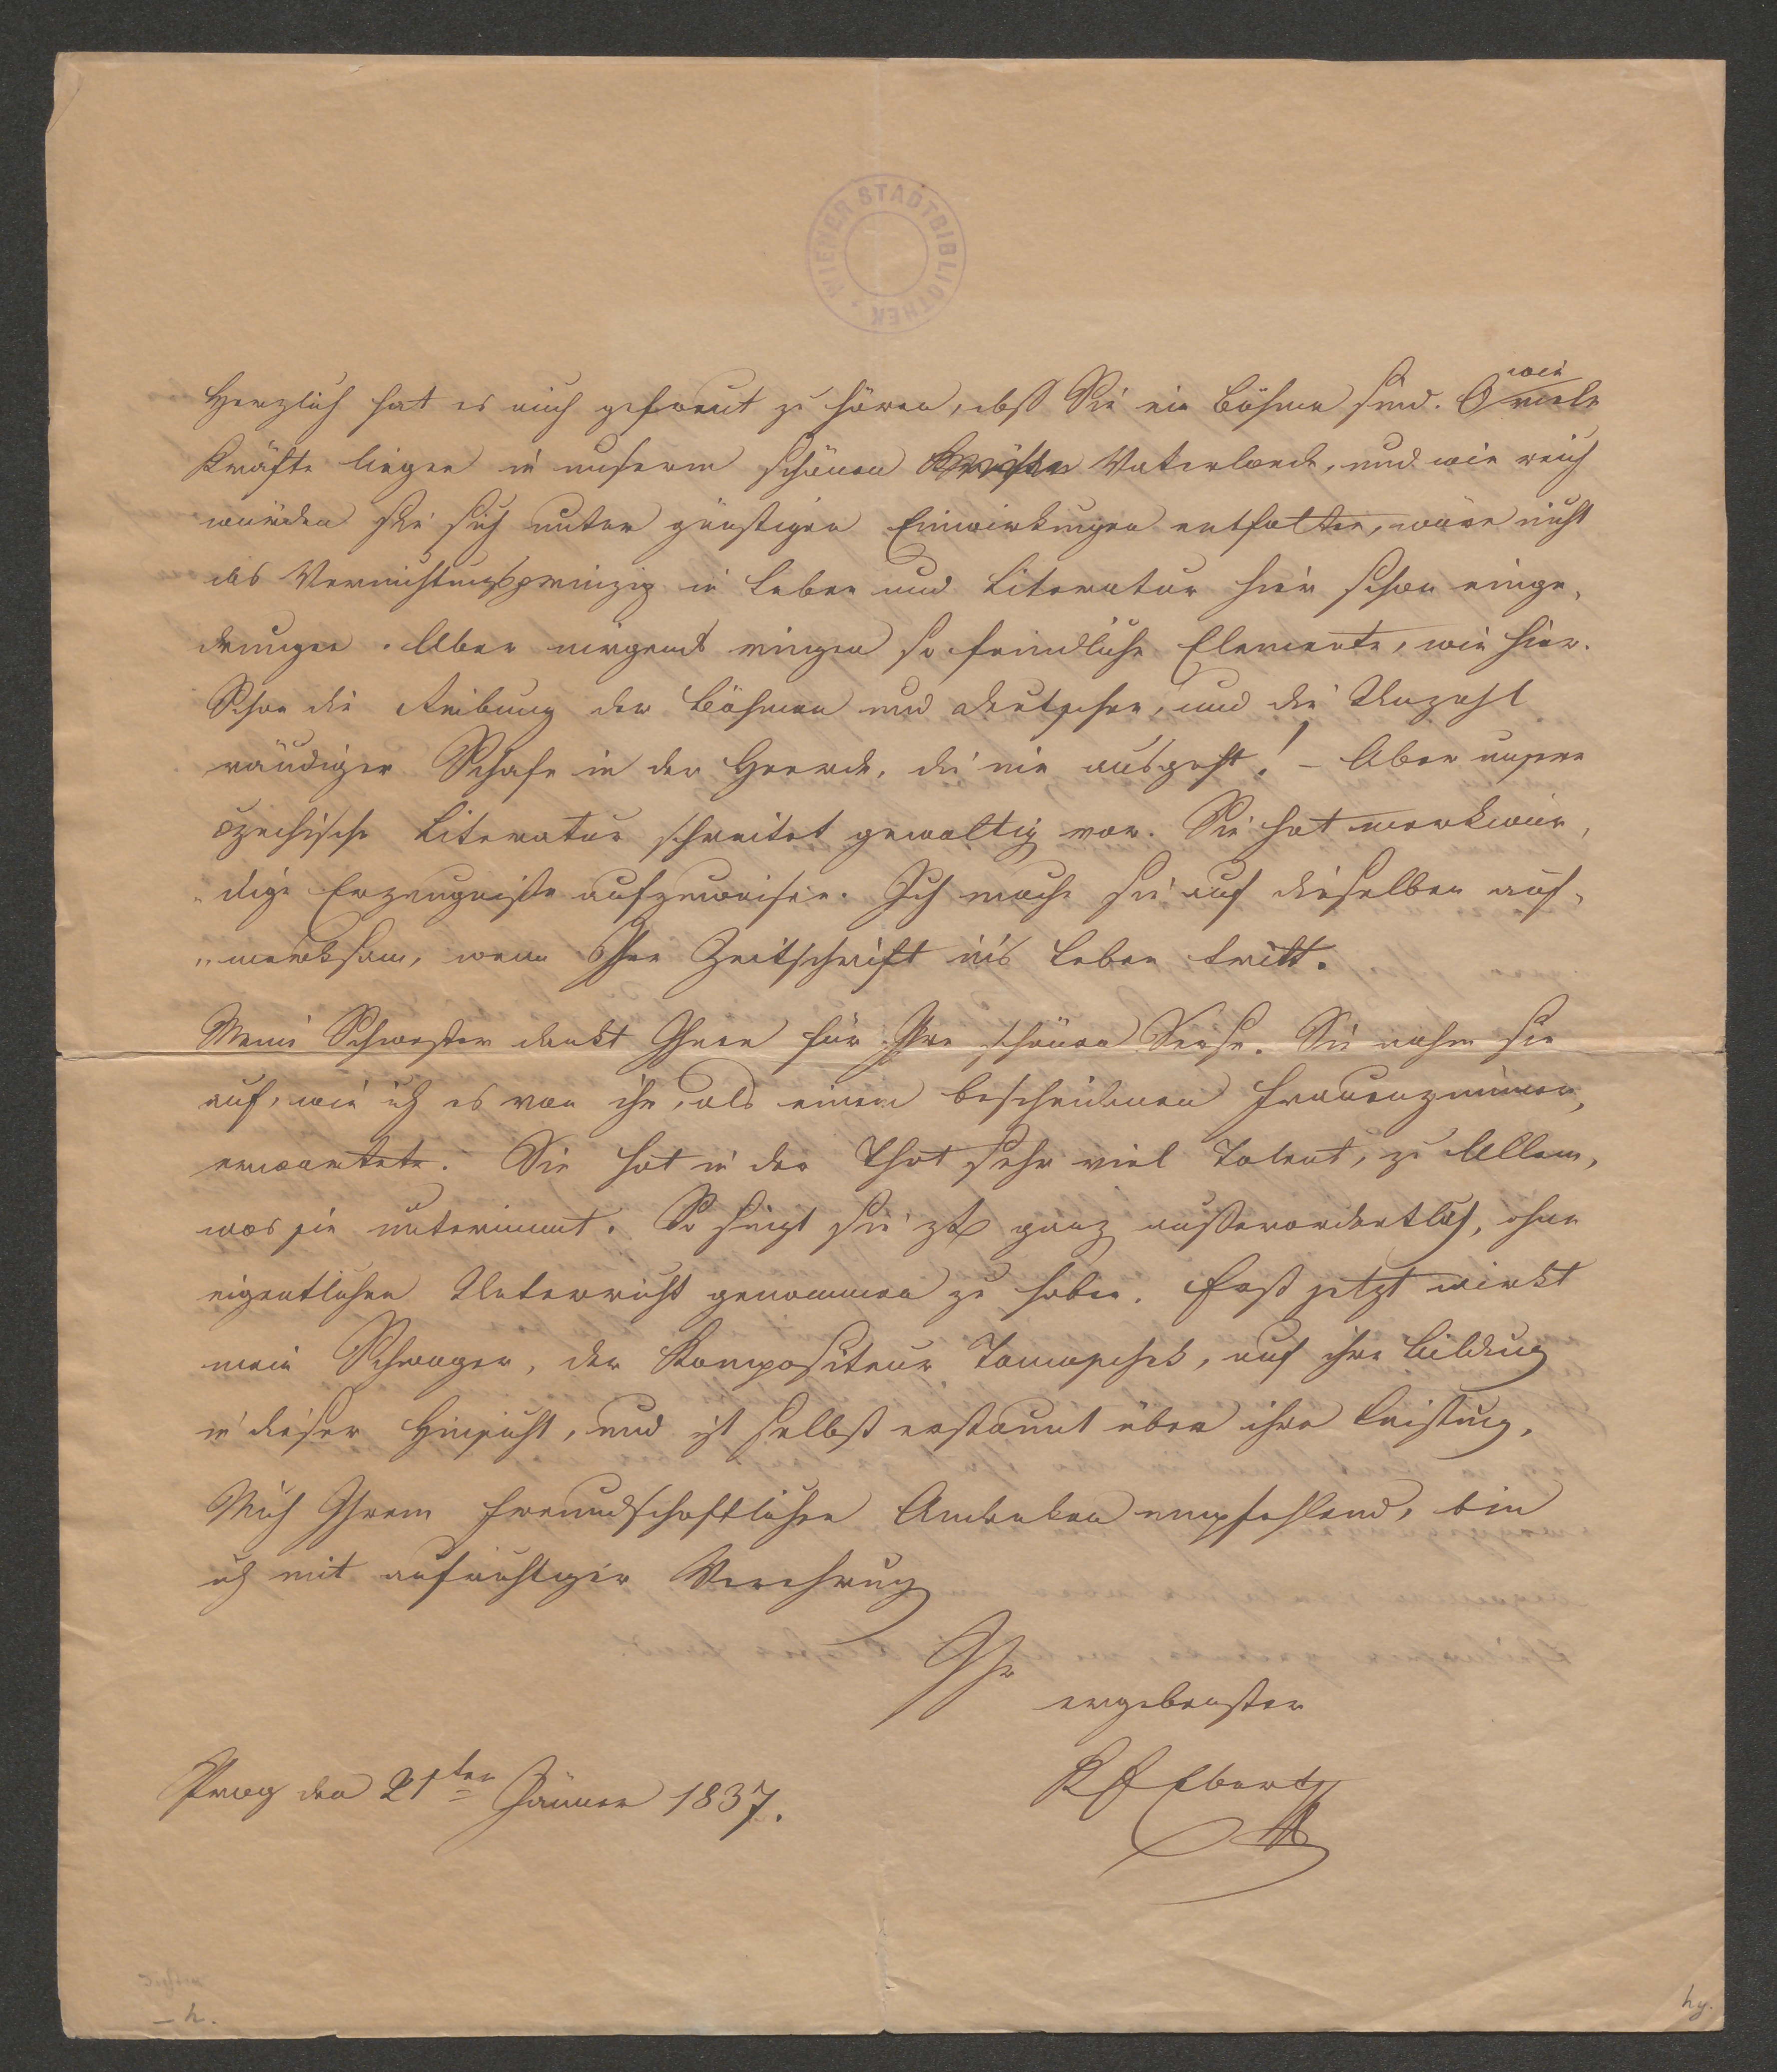 WIENER STADTBIBLIOTHEK
Herzlich hat es mich gefreut zu hören, daß Sie ein Böhme sind. O wie viele
Kräfte liegen in unserm schönen Vaterlande, und wie reich
würden sie sich unter günstigen Einwirkungen entfalten, wäre nicht
das Vernichtungsprinzip in Leben und Literatur hier schon einge-
drungen. Aber nirgends ringen so feindliche Elemente, wie hier.
Schon die Reibung der Böhmen und Deutschen, und die Unzahl
räudiger Schafe in der Heerde, die nie ausgeht! – Aber unsere
czechische Literatur schreitet gewaltig vor. Sie hat merkwür-
dige Erzeugniße aufzuweisen. Ich mache Sie auf dieselben auf-
merksam, wenn Ihre Zeitschrift in's Leben tritt.
Meine Schwester dankt Ihnen für Ihre schönen Verse. Sie nahm sie
auf, wie ich es von ihr, als einem bescheidenen Frauenzimmer,
erwartete. Sie hat in der That sehr viel Talent, zu Allem,
was sie unternimmt. So singt sie zB ganz außerordentlich, ohne
eigentlichen Unterricht genommen zu haben. Erst jetzt wirkt
mein Schwager, der Kompositeur Tomaschek, auf ihre Bildung
in dieser Hinsicht, und ist selbst erstaunt über ihre Leistung.
Mich Ihrem freundschaftlichen Andenken empfehlend, bin
ich mit aufrichtiger Verehrung
Ihr
ergebenster
K E Ebert
Prag den 21ten Jänner 1837.